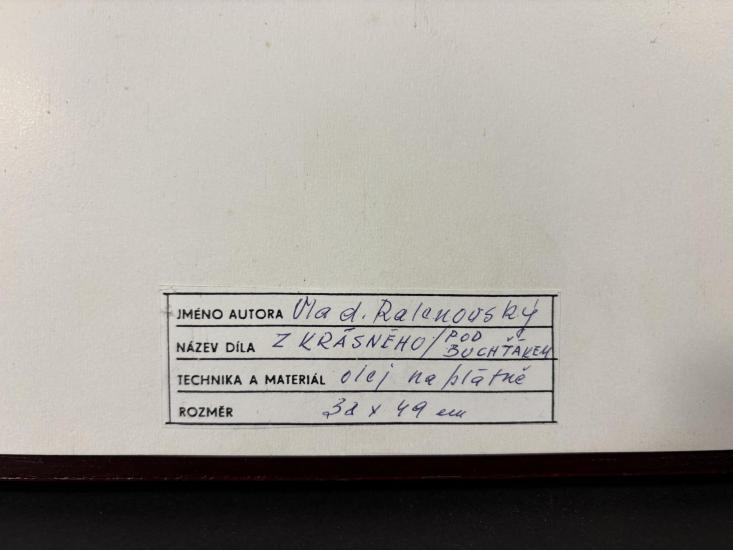 JMÉNO AUTORA Vlad.
NÁZEV DÍLA Z KRÁSNÉHO/POD BUCHŤÁKEM
TECHNIKA A MATERIÁL olej na plátně
ROZMĚR x 49 cm